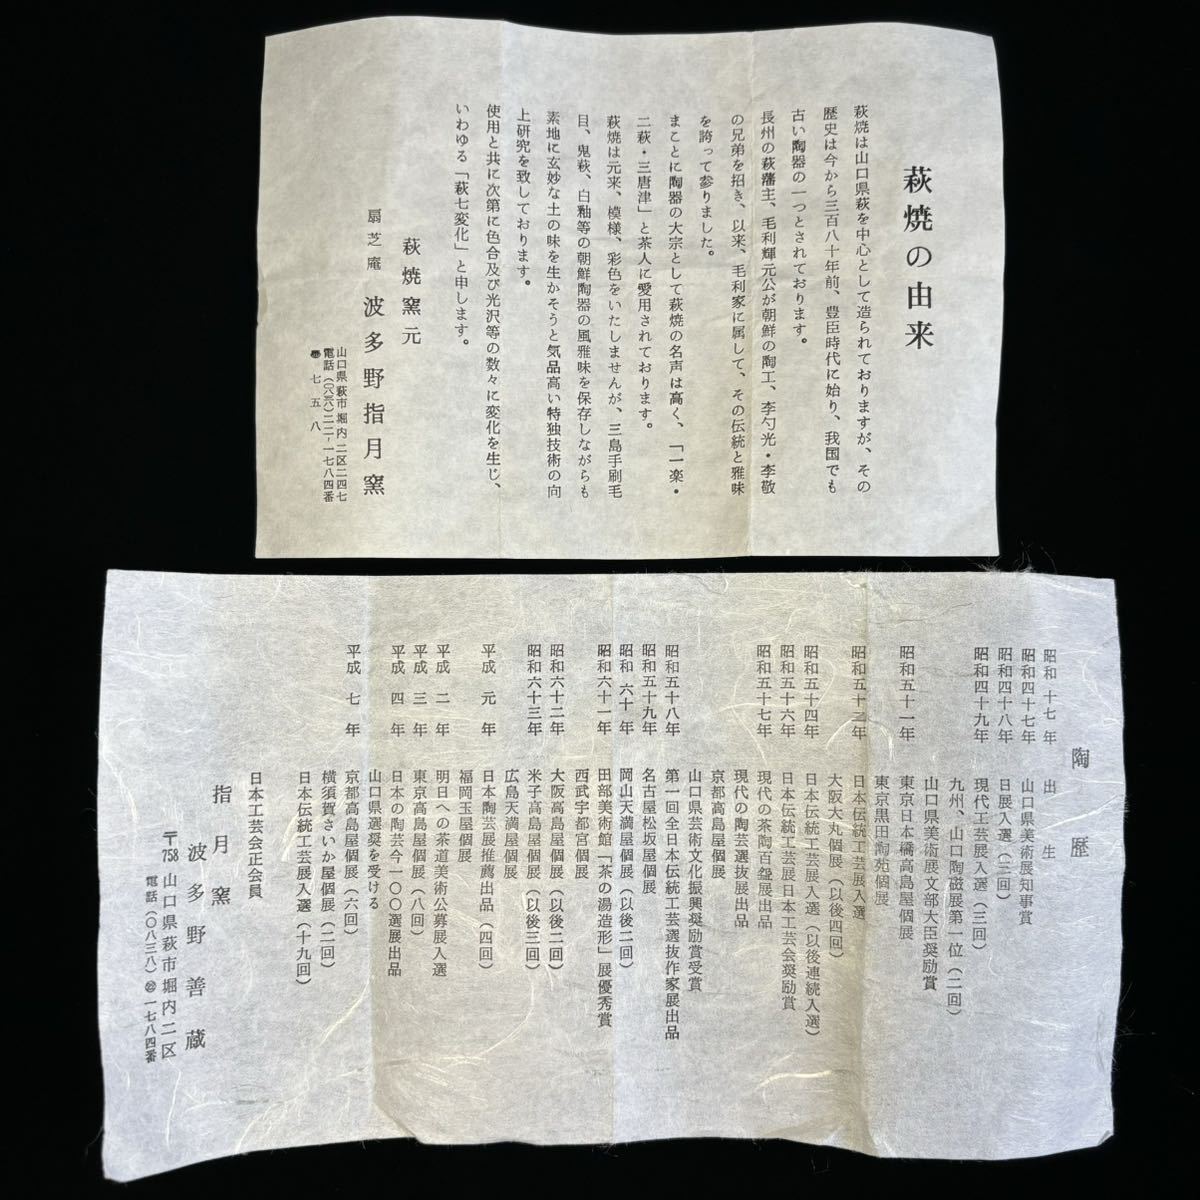 萩焼の由来
萩焼は山口県萩を中心として造られておりますが、その
歴史は今から三百八十年前、豊臣時代に始り、我国でも
古い陶器の一つとされております。
長州の萩藩主、毛利輝元公が朝鮮の陶工、李勺光・李敬
の兄弟を招き、以来、毛利家に属して、その伝統と雅味
を誇って参りました。
まことに陶器の大宗として萩焼の名声は高く、「一楽・
二萩・三唐津」と茶人に愛用されております。
萩焼は元来、模様、彩色をいたしませんが、三島手刷毛
目、鬼萩、白釉等の朝鮮陶器の風雅味を保存しながらも
素地に玄妙な土の味を生かそうと気品高い特独技術の向
上研究を致しております。
使用と共に次第に色合及び光沢等の数々に変化を生じ、
いわゆる「萩七変化」と申します。
萩焼窯元
扇芝庵 波多野指月窯
山口県萩市堀内二区二四七
電話(〇八三八)二二-一七八四番
〒 七五八
陶歴
昭和十七年 出生
昭和四十七年 山口県美術展知事賞
昭和四十八年 日展入選(三回)
昭和四十九年 現代工芸展入選(三回)
九州、山口陶磁展第一位(二回)
山口県美術展文部大臣奨励賞
昭和五十一年 東京日本橋高島屋個展
東京黒田陶苑個展
昭和五十二年 日本伝統工芸展入選
大阪大丸個展(以後四回)
昭和五十四年 日本伝統工芸展入選(以後連続入選)
昭和五十六年 日本伝統工芸展日本工芸会奨励賞
昭和五十七年 現代の茶陶百盌展出品
現代の陶芸選抜展出品
京都高島屋個展
山口県芸術文化振興奨励賞受賞
昭和五十八年 第一回全日本伝統工芸選抜作家展出品
昭和五十九年 名古屋松坂屋個展
昭和六十年 岡山天満屋個展(以後二回)
昭和六十一年 田部美術館「茶の湯造形」展優秀賞
西武宇都宮個展
昭和六十二年 大阪高島屋個展(以後二回)
昭和六十三年 米子高島屋個展(以後三回)
広島天満屋個展
平成元年 日本陶芸展推薦出品(四回)
福岡玉屋個展
平成二年 明日への茶道美術公募展入選
平成三年 東京高島屋個展(八回)
平成四年 日本の陶芸今一〇〇選展出品
山口県選奨を受ける
平成七年 京都高島屋個展(六回)
横須賀さいか屋個展(二回)
日本伝統工芸展入選(十九回)
日本工芸会正会員
指月窯
波多野善蔵
〒758 山口県萩市堀内二区
電話(〇八三八)㉒一七八四番